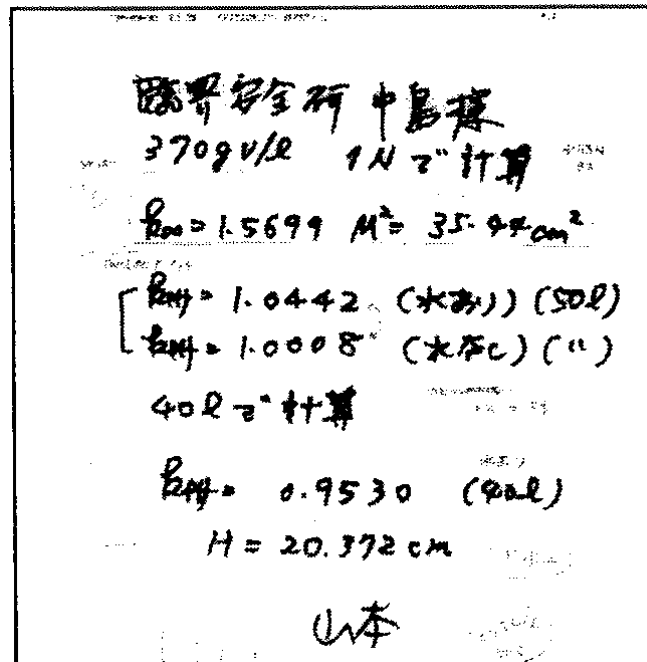 臨界安全研 中島様
370gU/l 1Nで計算
k∞=1.5699 M²=35.44cm²
keff=1.0442 (水あり) (50l)
keff=1.0008 (水なし) (〃)
40lで計算
keff= 0.9530 (40l)
H = 20.372cm
山本